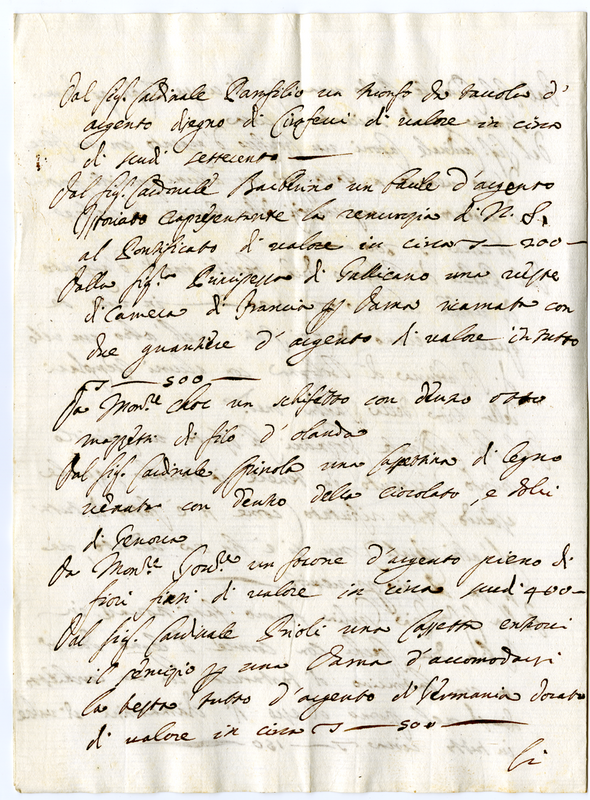 Dal Sig.r Cardinale Panfilio un trionfo da tavola d'
argento disegno di Ciroferri di valore in circa
di scudi settecento —
Dal Sig.r Cardinale Barberino un baule d'argento
Istoriato rapresentante la renunzia di N. S.
al Pontificato di valore in circa — 200 —
Dalla Sig.ra Principessa di Gallicano una veste
di camera di Francia per Dama ricamata con
due guantiere d'argento di valore in tutto
— 500 —
Da Mons.re un schifetto con dentro otto
mazzetti di filo d'olanda
Dal Sig.r Cardinale Spinola una Cassettina di legno
venata con dentro della ciocolata, e dolci
di Genova
Da Mons.re Gov.re un focone d'argento pieno di
fiori finti di valore in circa scudi 400 —
Dal Sig.r Cardinale Prioli una Cassetta entrovi
il servizio per una Dama d'accomodarsi
la testa tutto d'argento di Germania dorato
di valore in circa — 500 —